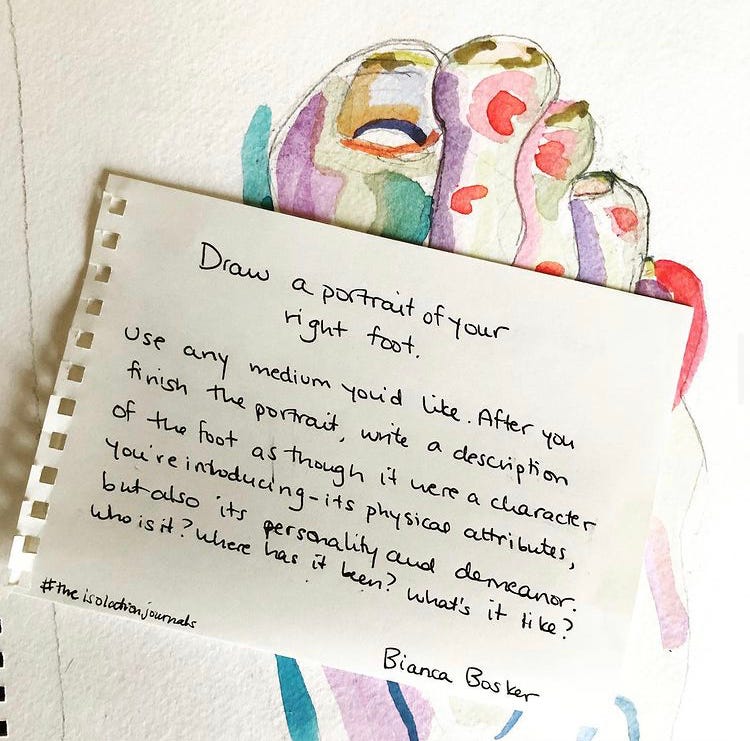 Draw a portrait of your
right foot.
Use any medium you'd like. After you
finish the portrait, write a description
of the foot as though it were a character
you're introducing - its physical attributes,
but also its personality and demeanor.
Who is it? Where has it been? What's it like?
#theisolationjournals
Bianca Bosker